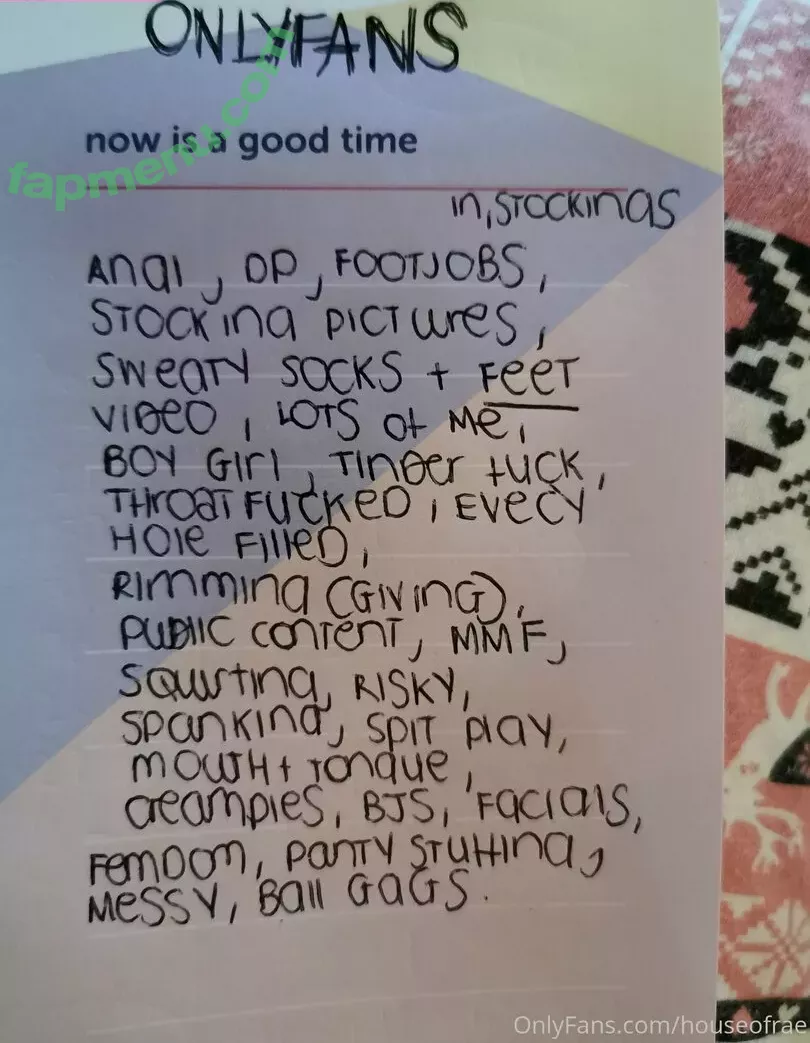 ONLYFANS
now is a good time
fapmenu.com
in, STOCKINGS
Anal, DP, FOOTJOBS,
STOCKING PICTURES,
SWEATY SOCKS + FEET
VIDEO, LOTS OF ME,
BOY GIRL, TINDER FUCK,
THROAT FUCKED, EVERY
HOLE FILLED,
RIMMING (GIVING),
PUBLIC CONTENT, MMF,
SQUIRTING, RISKY,
SPANKING, SPIT PLAY,
MOUTH + TONGUE,
CREAMPIES, BJS, FACIALS,
FEMDOM, PANTY STUFFING,
MESSY, BALL GAGS.
OnlyFans.com/houseofrae